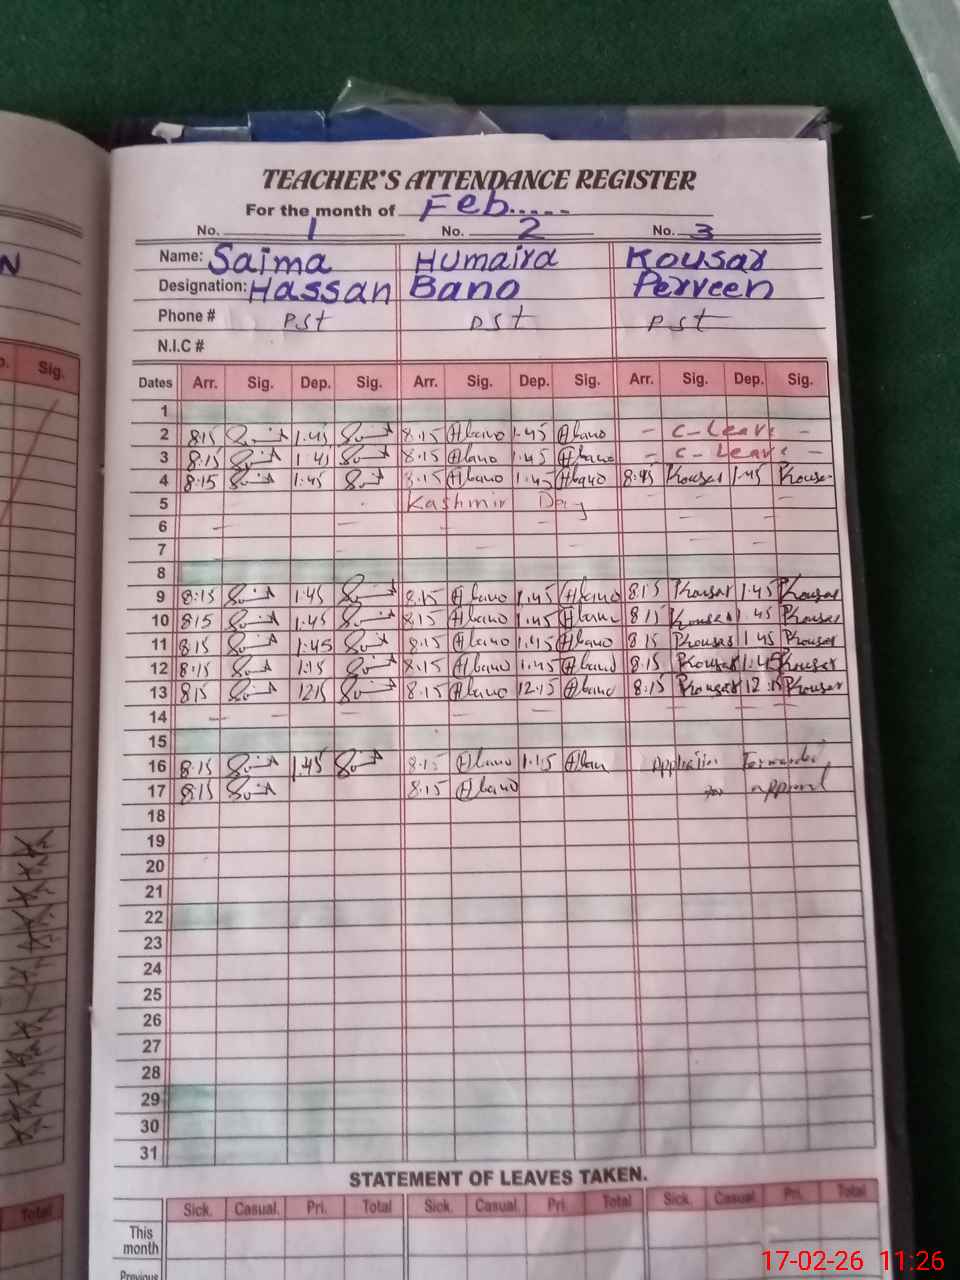 TEACHER'S ATTENDANCE REGISTER
For the month of Feb.....
No. 1 No. 2 No. 3
Name: Saima Humaira Kousar
Designation: Hassan Bano Perveen
Phone # PST PST PST
N.I.C #
Dates Arr. Sig. Dep. Sig. Arr. Sig. Dep. Sig. Arr. Sig. Dep. Sig.
1
2 8:15 1:45 8:15 Hbano 1:45 Hbano - C-Leave -
3 8:15 1:45 8:15 Hbano 1:45 Hbano - C-Leave -
4 8:15 1:45 8:15 Hbano 1:45 Hbano 8:45 Kousar 1:45 Kousar
5 Kashmir Day
6
7
8
9 8:15 1:45 8:15 Hbano 1:45 Hbano 8:15 Kousar 1:45 Kousar
10 8:15 1:45 8:15 Hbano 1:45 Hbano 8:15 Kousar 1:45 Kousar
11 8:15 1:45 8:15 Hbano 1:45 Hbano 8:15 Kousar 1:45 Kousar
12 8:15 1:15 8:15 Hbano 1:45 Hbano 8:15 Kousar 1:45 Kousar
13 8:15 12:15 8:15 Hbano 12:15 Hbano 8:15 Kousar 12:15 Kousar
14
15
16 8:15 1:45 8:15 Hbano 1:15 Hbano Application Forwarded
17 8:15 8:15 Hbano for approval
18
19
20
21
22
23
24
25
26
27
28
29
30
31
STATEMENT OF LEAVES TAKEN.
Sick. Casual. Pri. Total Sick. Casual. Pri. Total Sick. Casual. Pri. Total
This
month
Previous
Sig.
Total
17-02-26 11:26